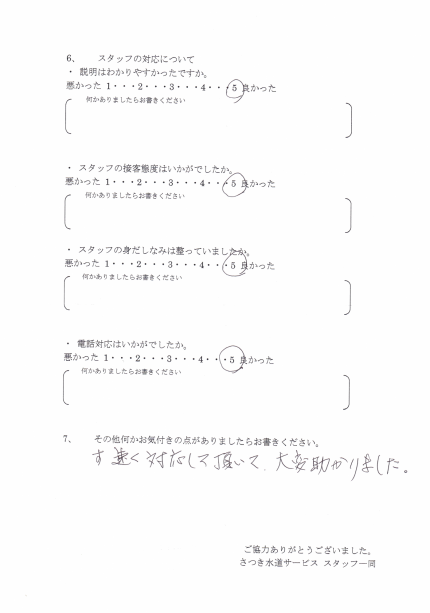 6、 スタッフの対応について
・ 説明はわかりやすかったですか。
悪かった 1・・・2・・・3・・・4・・・5 良かった
何かありましたらお書きください
・ スタッフの接客態度はいかがでしたか。
悪かった 1・・・2・・・3・・・4・・・5 良かった
何かありましたらお書きください
・ スタッフの身だしなみは整っていましたか。
悪かった 1・・・2・・・3・・・4・・・5 良かった
何かありましたらお書きください
・ 電話対応はいかがでしたか。
悪かった 1・・・2・・・3・・・4・・・5 良かった
何かありましたらお書きください
7、 その他何かお気付きの点がありましたらお書きください。
す速く対応して頂いて、大変助かりました。
ご協力ありがとうございました。
さつき水道サービス スタッフ一同